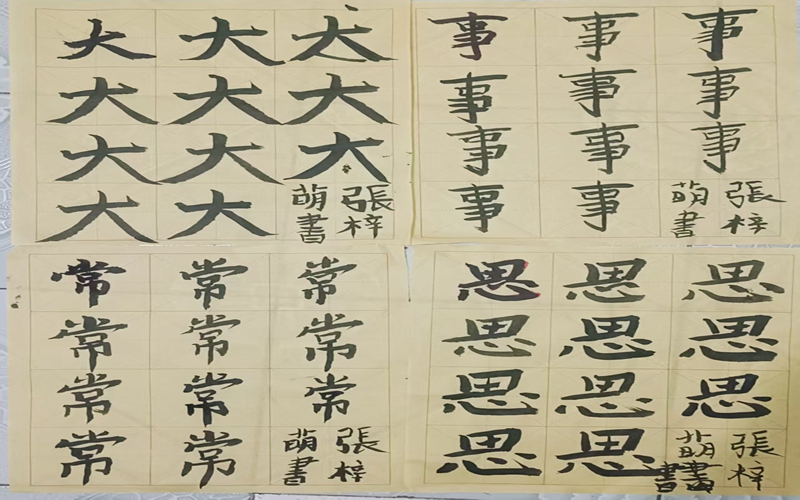 大大大
大大大
大大大
大大
張梓
萌書
事事事
事事事
事事事
事事
張梓
萌書
常常常
常常常
常常常
常常
張梓
萌書
思思思
思思思
思思思
思思
張梓
萌書